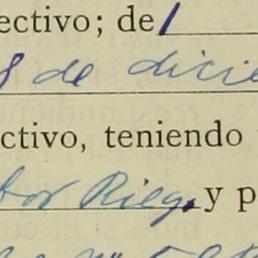 ectivo; de
de dicie
ctivo, teniendo
bor Rieg. y p